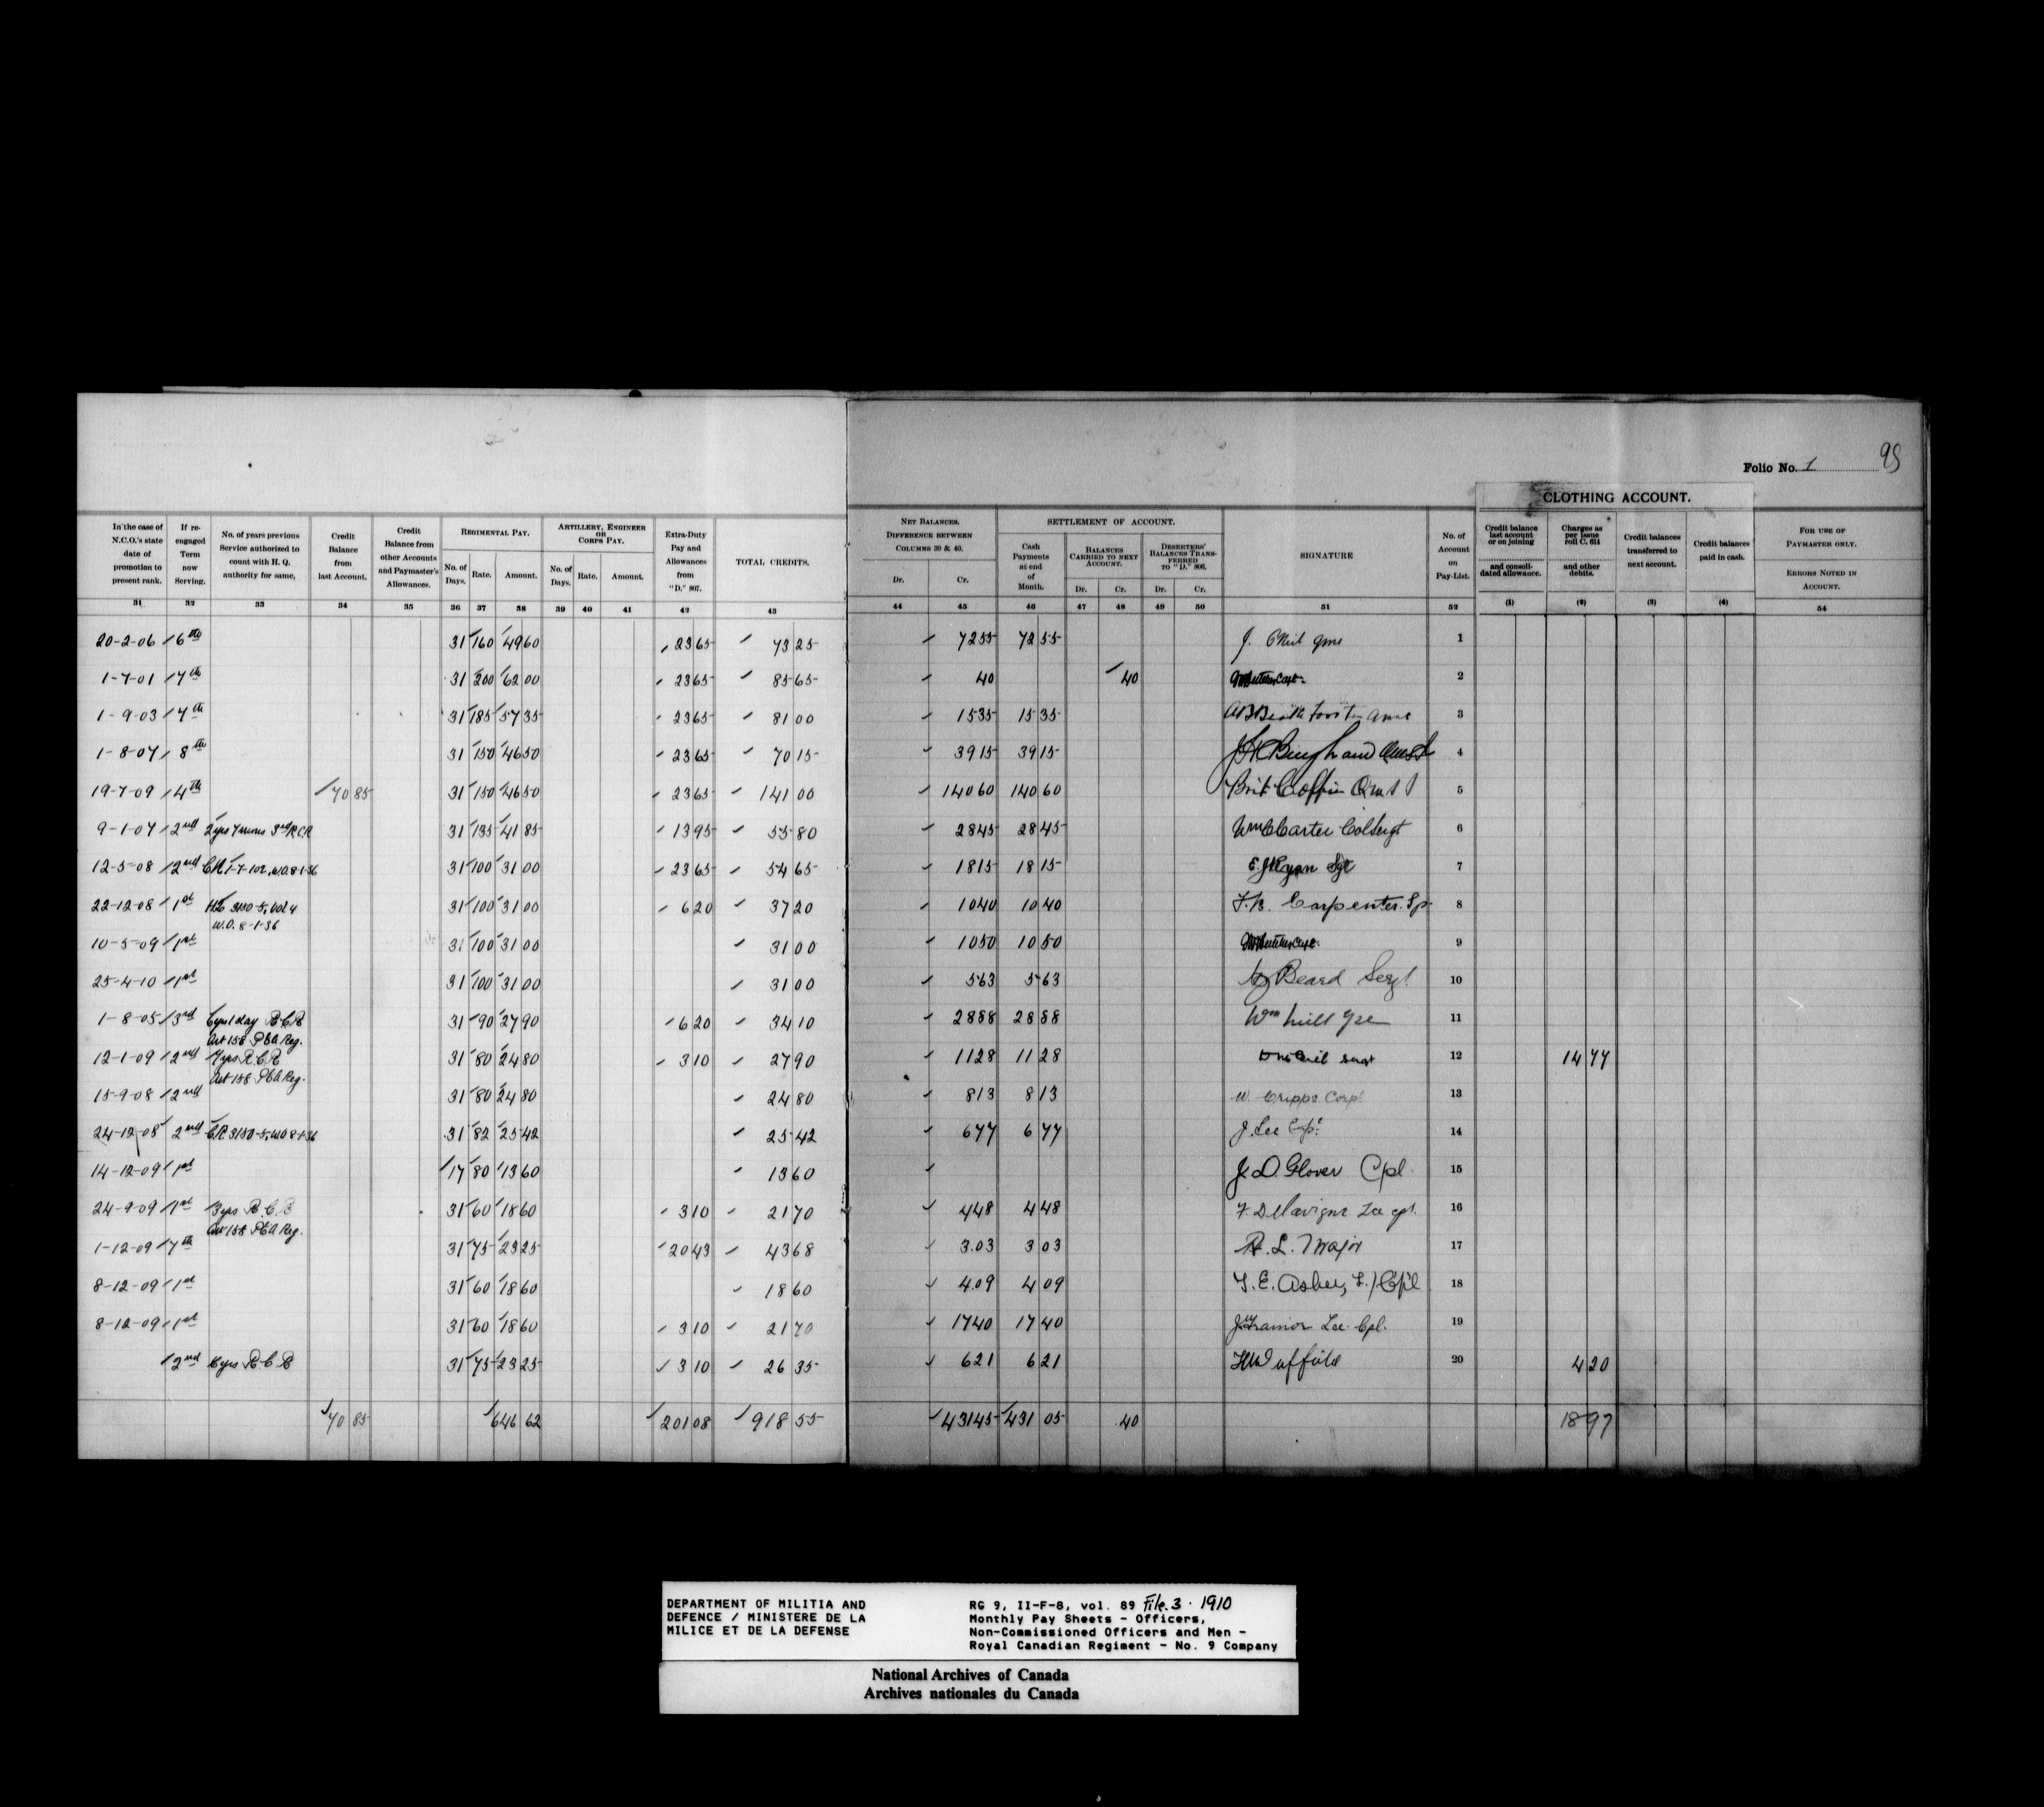 Folio No. 1 98
CLOTHING ACCOUNT.
In the case of N.C.O.'s state date of promotion to present rank. | If re-engaged Term now Serving. | No. of years previous Service authorized to count with H. Q. authority for same, | Credit Balance from last Account. | Credit Balance from other Accounts and Paymaster's Allowances. | REGIMENTAL PAY. No. of Days. Rate. Amount. | ARTILLERY, ENGINEER OR CORPS PAY. No. of Days. Rate. Amount. | Extra-Duty Pay and Allowances from "D." 807. | TOTAL CREDITS. | NET BALANCES. DIFFERENCE BETWEEN COLUMNS 30 & 40. Dr. Cr. | SETTLEMENT OF ACCOUNT. Cash Payments at end of Month. BALANCES CARRIED TO NEXT ACCOUNT. Dr. Cr. DESERTERS' BALANCES TRANSFERRED TO "D." 806. Dr. Cr. | SIGNATURE | No. of Account on Pay-List. | Credit balance last account or on joining and consolidated allowance. | Charges as per Issue roll C. 614 and other debits. | Credit balances transferred to next account. | Credit balances paid in cash. | FOR USE OF PAYMASTER ONLY. ERRORS NOTED IN ACCOUNT.
31 32 33 34 35 36 37 38 39 40 41 42 43 44 45 46 47 48 49 50 51 52 (1) (2) (3) (4) 54
20-2-06 6th 31 160 4960 2365 7325 7255 7255 J. O'Neil Qms 1
1-7-01 7th 31 200 6200 2365 8565 40 40 2
1-9-03 7th 31 185 5735 2365 8100 1535 1535 3
1-8-07 8th 31 150 4650 2365 7015 3915 3915 J H Bingham 4
19-7-09 4th 7085 31 150 4650 2365 14100 14060 14060 Brit Coffin QmS 5
9-1-07 2nd 2 yrs 7 mos 3rd R.C.R 31 135 4185 1395 5580 2845 2845 Wm C Carter Col Sergt 6
12-5-08 2nd 31 100 3100 2365 5465 1815 1815 E. J Ryan Sgt 7
22-12-08 1st HQ 3150-5, Vol 4 31 100 3100 620 3720 1040 1040 F. B. Carpenter. 8
W.O. 8-1-36
10-5-09 1st 31 100 3100 3100 1050 1050 9
25-4-10 1st 31 100 3100 3100 563 563 Beard Sergt. 10
1-8-05 3rd 6 yrs 1 day R C R 31 90 2790 620 3410 2888 2888 Wm 11
Art 158 P&A Reg.
12-1-09 2nd 7 yrs R.C.R 31 80 2480 310 2790 1128 1128 12 1477
Art 158 P&A Reg.
15-9-08 2nd 31 80 2480 2480 813 813 W. Cripps Corpl 13
24-12-08 2nd 31 82 2542 2542 677 677 J. Lee Cpl. 14
14-12-09 1st 17 80 1360 1360 J. D. Glover Cpl. 15
24-9-09 1st 3 yrs R. C. R 31 60 1860 310 2170 448 448 F. Delavigne Lce cpl. 16
Art 158 P&A Reg.
1-12-09 7th 31 75 2325 2043 4368 3.03 303 R. L. Major 17
8-12-09 1st 31 60 1860 1860 4.09 409 T. E. Asbury L/Cpl 18
8-12-09 1st 31 60 1860 310 2170 1740 1740 Trainor Lce. Cpl. 19
2nd 6 yrs R. C R 31 75 2325 310 2635 621 621 Duffield 20 420
7085 646 62 20108 918 55 43145 431 05 .40 1897
DEPARTMENT OF MILITIA AND
DEFENCE / MINISTERE DE LA
MILICE ET DE LA DEFENSE
RG 9, II-F-8, vol. 89 File. 3. 1910
Monthly Pay Sheets - Officers,
Non-Commissioned Officers and Men -
Royal Canadian Regiment - No. 9 Company
National Archives of Canada
Archives nationales du Canada